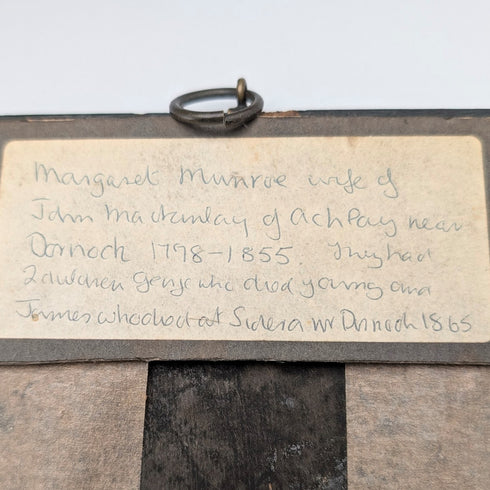 Margaret Munroe wife of
John Mackinlay of Achlay near
Dornoch 1798–1855. They had
2 children George who died young and
James who died at Sidera nr Dornoch 1865